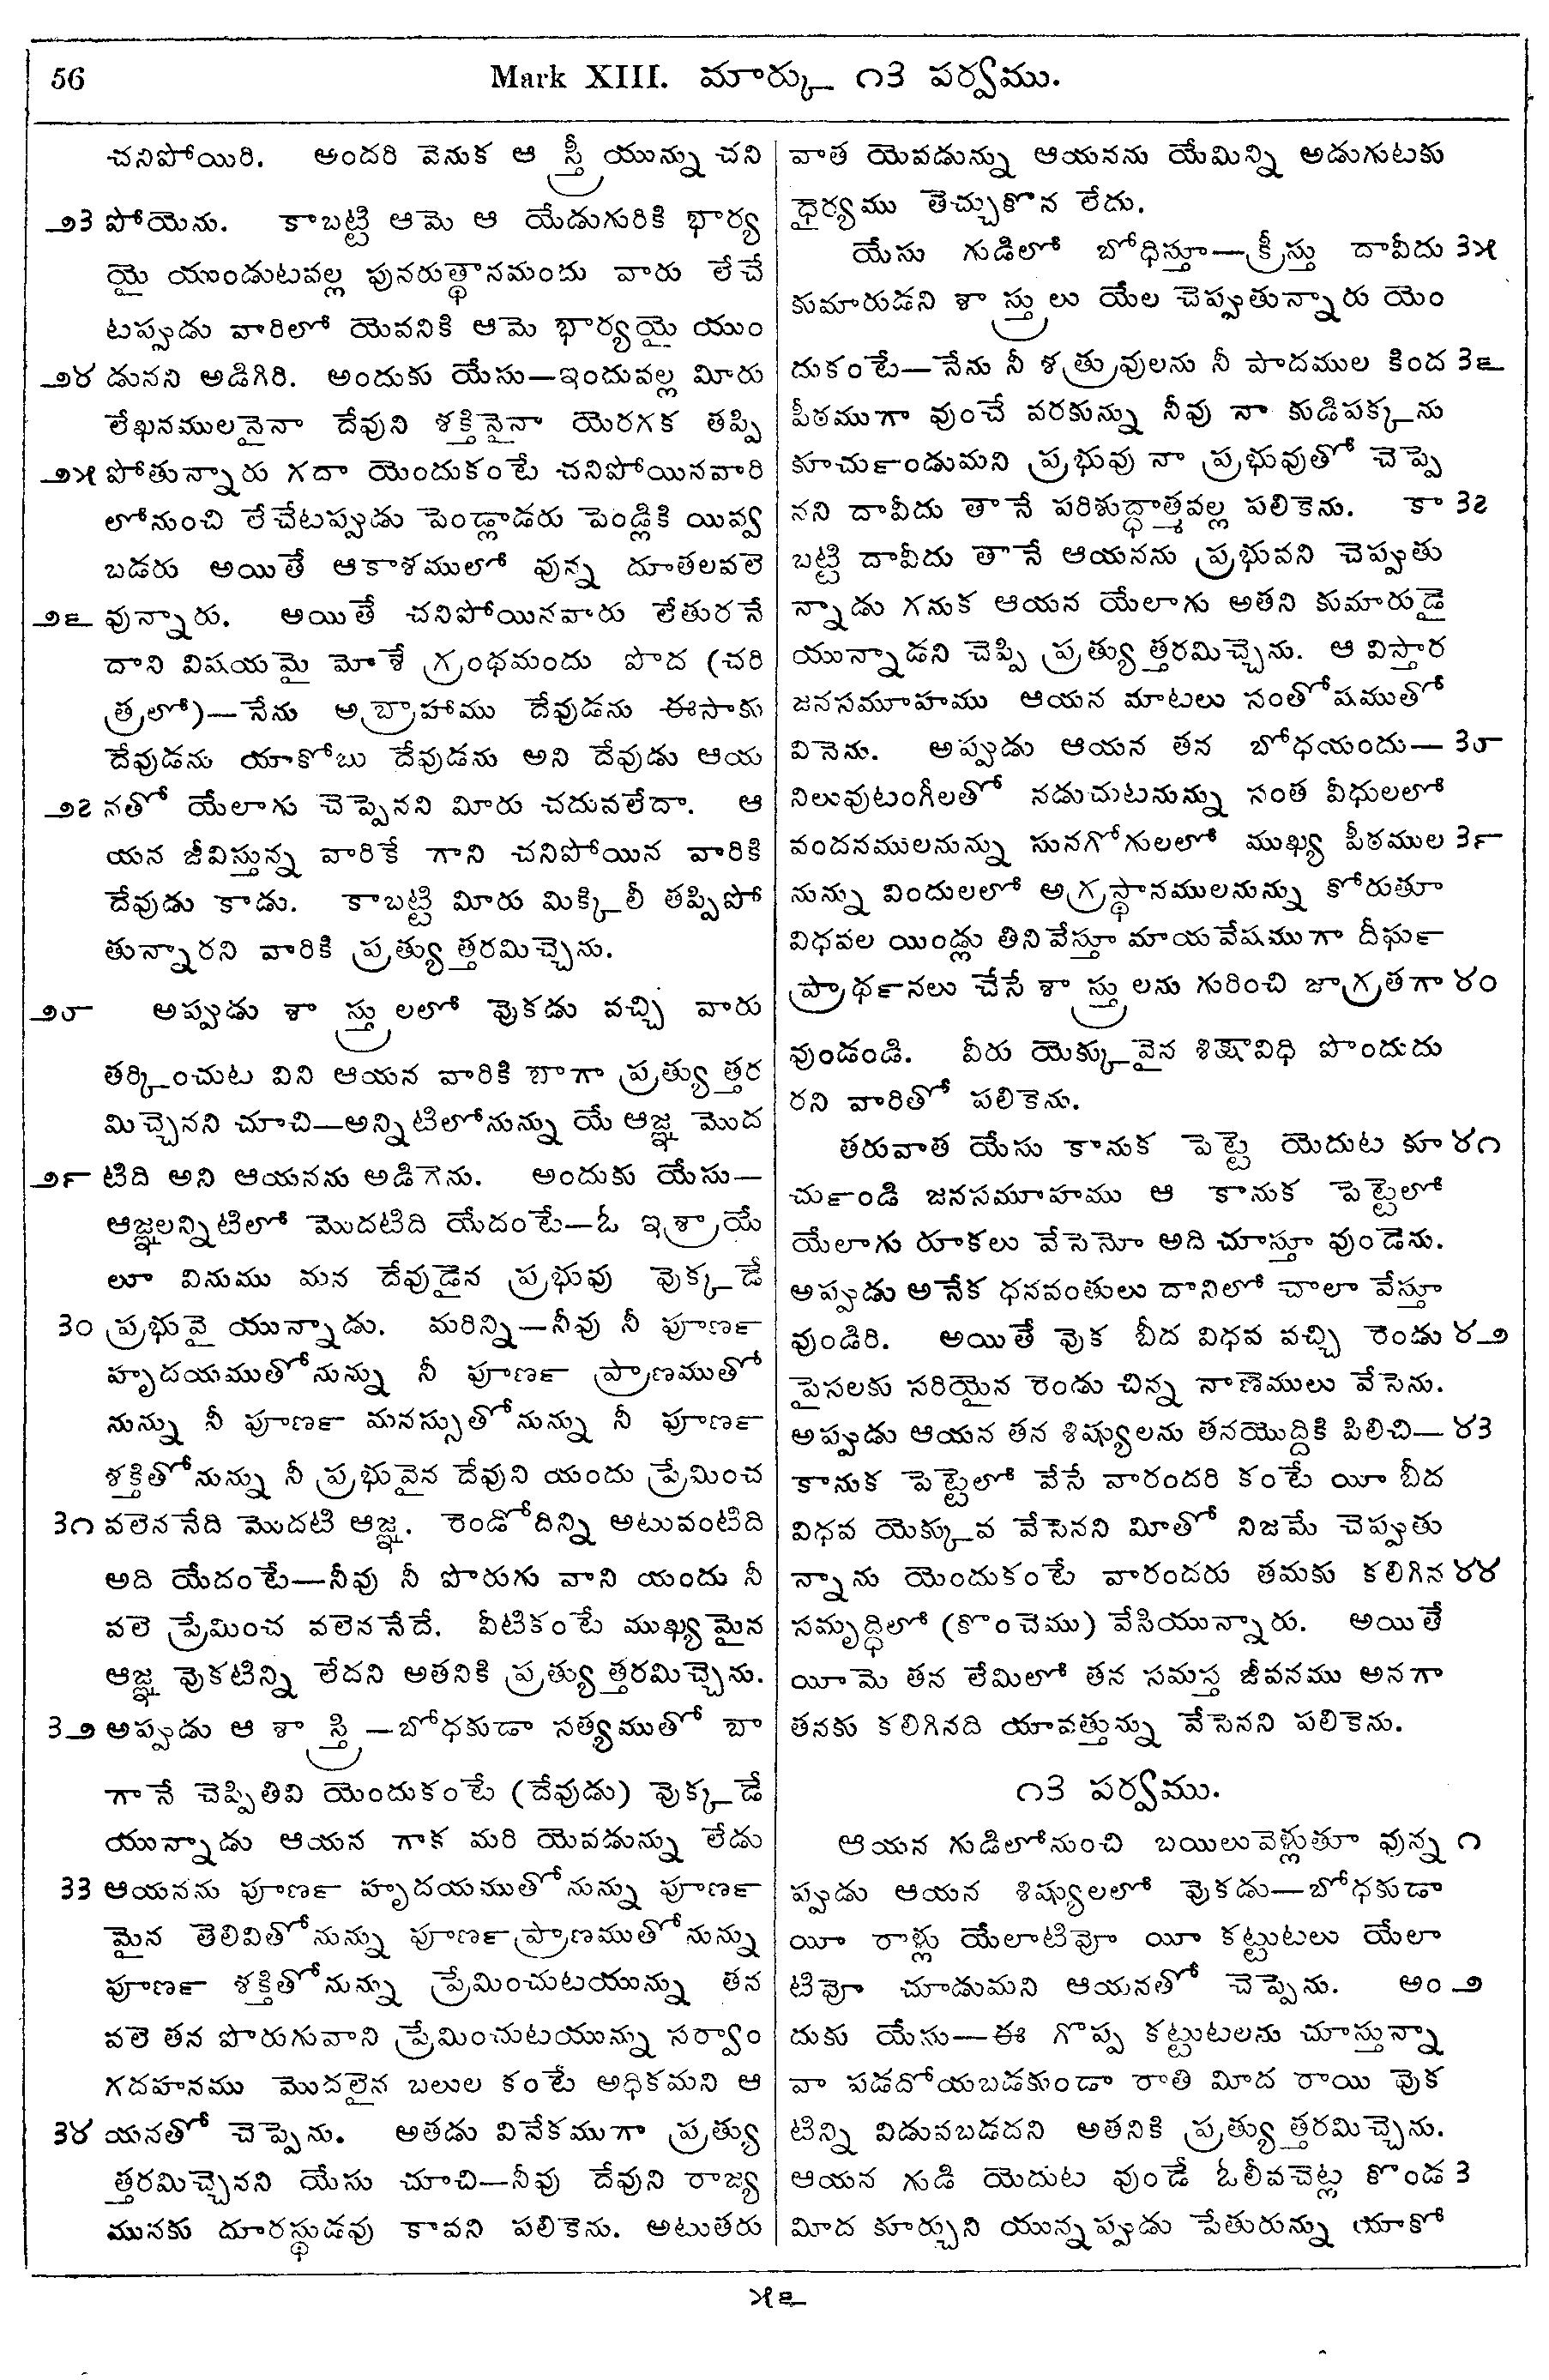 56
Mark XIII. మార్కు ౧౩ పర్వము.
చనిపోయిరి. అందరి వెనుక ఆ స్త్రీ యున్ను చని
౨౩ పోయెను. కాబట్టి ఆమె ఆ యేడుగురికి భార్య
యై యుండుటవల్ల పునరుత్థానమందు వారు లేచే
టప్పుడు వారిలో యెవనికి ఆమె భార్యయై యుం
౨౪ డునని అడిగిరి. అందుకు యేసు—ఇందువల్ల మీరు
లేఖనములనైనా దేవుని శక్తినైనా యెరగక తప్పి
౨౫ పోతున్నారు గదా యెందుకంటే చనిపోయినవారి
లోనుంచి లేచేటప్పుడు పెండ్లాడరు పెండ్లికి యివ్వ
బడరు అయితే ఆకాశములో వున్న దూతలవలె
౨౬ వున్నారు. అయితే చనిపోయినవారు లేతురనే
దాని విషయమై మోశే గ్రంథమందు పొద (చరి
త్రలో)—నేను అబ్రాహాము దేవుడను ఈసాకు
దేవుడను యాకోబు దేవుడను అని దేవుడు ఆయ
౨౭ నతో యేలాగు చెప్పెనని మీరు చదువలేదా. ఆ
యన జీవిస్తున్న వారికే గాని చనిపోయిన వారికి
దేవుడు కాడు. కాబట్టి మీరు మిక్కిలీ తప్పిపో
తున్నారని వారికి ప్రత్యుత్తరమిచ్చెను.
౨౮ అప్పుడు శాస్త్రులలో వొకడు వచ్చి వారు
తర్కించుట విని ఆయన వారికి బాగా ప్రత్యుత్తర
మిచ్చెనని చూచి—అన్నిటిలోనున్ను యే ఆజ్ఞ మొద
౨౯ టిది అని ఆయనను అడిగెను. అందుకు యేసు—
ఆజ్ఞలన్నిటిలో మొదటిది యేదంటే—ఓ ఇశ్రాయే
లూ వినుము మన దేవుడైన ప్రభువు వొక్కడే
౩౦ ప్రభువై యున్నాడు. మరిన్ని—నీవు నీ పూణ౯
హృదయముతోనున్ను నీ పూణ౯ ప్రాణముతో
నున్ను నీ పూణ౯ మనస్సుతోనున్ను నీ పూణ౯
శక్తితోనున్ను నీ ప్రభువైన దేవుని యందు ప్రేమించ
౩౧ వలెననేది మొదటి ఆజ్ఞ. రెండోదిన్ని అటువంటిది
అది యేదంటే—నీవు నీ పొరుగు వాని యందు నీ
వలె ప్రేమించ వలెననేదే. వీటికంటే ముఖ్యమైన
ఆజ్ఞ వొకటిన్ని లేదని అతనికి ప్రత్యుత్తరమిచ్చెను.
౩౨ అప్పుడు ఆ శాస్త్రి—బోధకుడా సత్యముతో బా
గానే చెప్పితివి యెందుకంటే (దేవుడు) వొక్కడే
యున్నాడు ఆయన గాక మరి యెవడున్ను లేడు
౩౩ ఆయనను పూణ౯ హృదయముతోనున్ను పూణ౯
మైన తెలివితోనున్ను పూణ౯ ప్రాణముతోనున్ను
పూణ౯ శక్తితోనున్ను ప్రేమించుటయున్ను తన
వలె తన పొరుగువాని ప్రేమించుటయున్ను సర్వాం
గదహనము మొదలైన బలుల కంటే అధికమని ఆ
౩౪ యనతో చెప్పెను. అతడు వివేకముగా ప్రత్యు
త్తరమిచ్చెనని యేసు చూచి—నీవు దేవుని రాజ్య
మునకు దూరస్థుడవు కావని పలికెను. అటుతరు
వాత యెవడున్ను ఆయనను యేమిన్ని అడుగుటకు
ధైర్యము తెచ్చుకొన లేదు.
యేసు గుడిలో బోధిస్తూ—క్రీస్తు దావీదు ౩౫
కుమారుడని శాస్త్రులు యేల చెప్పుతున్నారు యెం
దుకంటే—నేను నీ శత్రువులను నీ పాదముల కింద ౩౬
పీఠముగా వుంచే వరకున్ను నీవు నా కుడిపక్కను
కూచు౯ండుమని ప్రభువు నా ప్రభువుతో చెప్పె
నని దావీదు తానే పరిశుద్ధాత్మవల్ల పలికెను. కా ౩౭
బట్టి దావీదు తానే ఆయనను ప్రభువని చెప్పుతు
న్నాడు గనుక ఆయన యేలాగు అతని కుమారుడై
యున్నాడని చెప్పి ప్రత్యుత్తరమిచ్చెను. ఆ విస్తార
జనసమూహము ఆయన మాటలు సంతోషముతో
వినెను. అప్పుడు ఆయన తన బోధయందు— ౩౮
నిలువుటంగీలతో నడుచుటనున్ను సంత వీధులలో
వందనములనున్ను సునగోగులలో ముఖ్య పీఠముల ౩౯
నున్ను విందులలో అగ్రస్థానములనున్ను కోరుతూ
విధవల యిండ్లు తినివేస్తూ మాయవేషముగా దీఘ౯
ప్రాథ౯నలు చేసే శాస్త్రులను గురించి జాగ్రతగా ౪౦
వుండండి. వీరు యెక్కువైన శిక్షావిధి పొందుదు
రని వారితో పలికెను.
తరువాత యేసు కానుక పెట్టె యెదుట కూ ౪౧
చు౯ండి జనసమూహము ఆ కానుక పెట్టెలో
యేలాగు రూకలు వేసెనో అది చూస్తూ వుండెను.
అప్పుడు అనేక ధనవంతులు దానిలో చాలా వేస్తూ
వుండిరి. అయితే వొక బీద విధవ వచ్చి రెండు ౪౨
పైసలకు సరియైన రెండు చిన్న నాణెములు వేసెను.
అప్పుడు ఆయన తన శిష్యులను తనయొద్దికి పిలిచి— ౪౩
కానుక పెట్టెలో వేసే వారందరి కంటే యీ బీద
విధవ యెక్కువ వేసెనని మీతో నిజమే చెప్పుతు
న్నాను యెందుకంటే వారందరు తమకు కలిగిన ౪౪
సమృద్ధిలో (కొంచెము) వేసియున్నారు. అయితే
యీమె తన లేమిలో తన సమస్త జీవనము అనగా
తనకు కలిగినది యావత్తున్ను వేసెనని పలికెను.
౧౩ పర్వము.
ఆయన గుడిలోనుంచి బయిలువెళ్లుతూ వున్న ౧
ప్పుడు ఆయన శిష్యులలో వొకడు—బోధకుడా
యీ రాళ్లు యేలాటివో యీ కట్టుటలు యేలా
టివో చూడుమని ఆయనతో చెప్పెను. అం ౨
దుకు యేసు—ఈ గొప్ప కట్టుటలను చూస్తున్నా
వా పడదోయబడకుండా రాతి మీద రాయి వొక
టిన్ని విడువబడదని అతనికి ప్రత్యుత్తరమిచ్చెను.
ఆయన గుడి యెదుట వుండే ఓలీవచెట్ల కొండ ౩
మీద కూర్చుని యున్నప్పుడు పేతురున్ను యాకో
౫౬